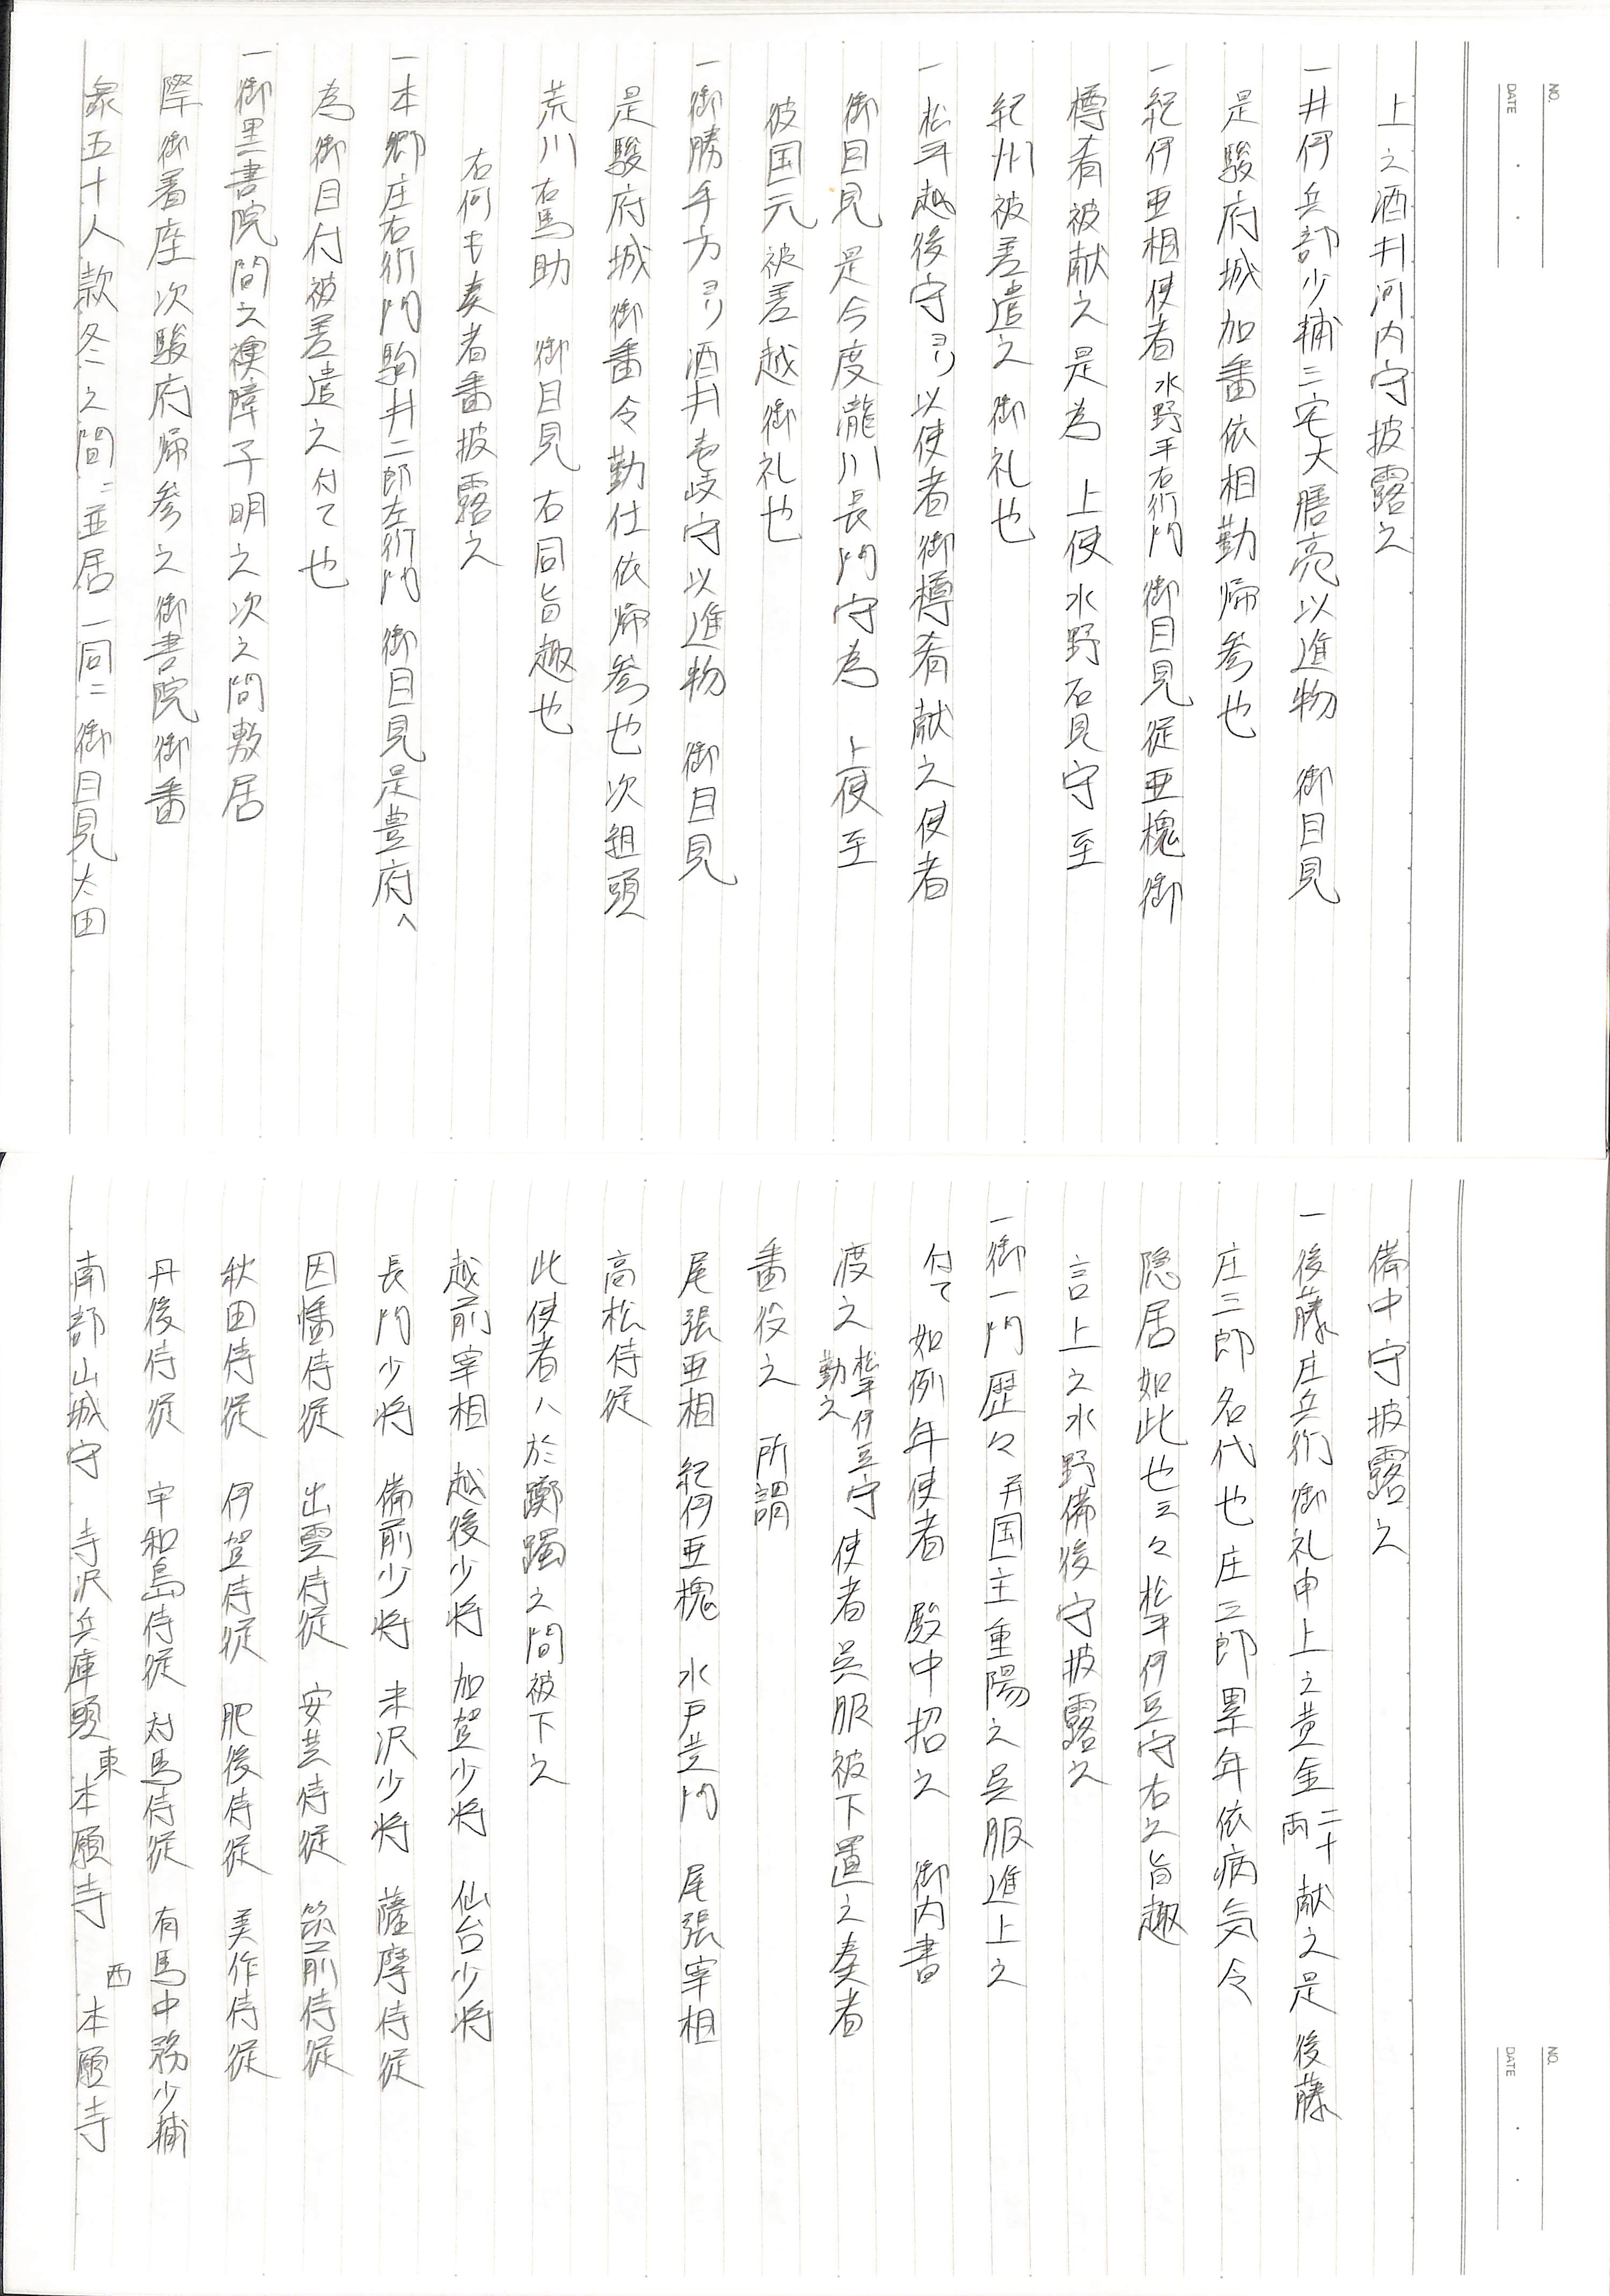 NO.
DATE
上之酒井河内守披露之
一井伊兵部少輔三宅大膳亮以進物 御目見
是駿府城加番依相勤帰参也
一紀伊亜相使者水野平右衛門 御目見従亜槐御
樽肴被献之是為 上使水野石見守至
紀州被差遣之御礼也
一松平越後守ヨリ以使者御樽肴献之使者
御目見是今度瀧川長門守為 上使至
彼国元被差越御礼也
一御勝手方ヨリ酒井壱岐守以進物 御目見
是駿府城御番令勤仕依帰参也次組頭
荒川右馬助 御目見右同旨趣也
右何も奏者番披露之
一本郷庄右衛門駒井二郎左衛門 御目見是豊府へ
為御目付被差遣之付て也
一御黒書院間之襖障子明之次之間敷居
際御着座次駿府帰参之御書院御番
衆五十人款冬之間ニ並居一同ニ御目見太田
NO.
DATE
備中守披露之
一後藤庄兵衛御礼申上之黄金二十両献之是後藤
庄三郎名代也庄三郎累年依病気令
隠居如此也云々松平伊豆守右之旨趣
言上之水野備後守披露之
一御一門歴々并国主重陽之呉服進上之
付て如例年使者 殿中招之 御内書
渡之松平伊豆守勤之使者呉服被下置之奏者
番役之 所謂
尾張亜相 紀伊亜槐 水戸黄門 尾張宰相
高松侍従
此使者ハ於躑躅之間被下之
越前宰相 越後少将 加賀少将 仙台少将
長門少将 備前少将 米沢少将 薩摩侍従
因幡侍従 出雲侍従 安芸侍従 筑前侍従
秋田侍従 伊賀侍従 肥後侍従 美作侍従
丹後侍従 宇和島侍従 対馬侍従 有馬中務少輔
南部山城守 寺沢兵庫頭 東本願寺 西本願寺